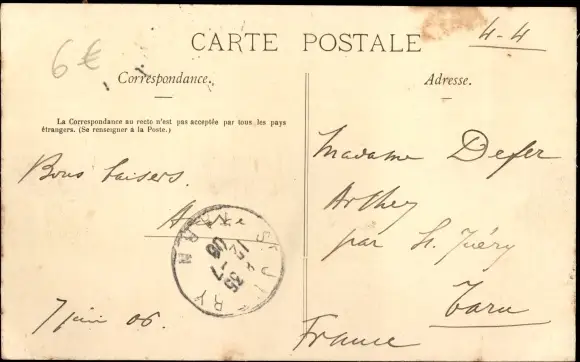 6€
CARTE POSTALE
4-4
Correspondance.
Adresse.
La Correspondance au recto n'est pas acceptée par tous les pays
étrangers. (Se renseigner à la Poste.)
Bons baisers.
7 juin 06.
Madame Defer
Arthey
par St. Juéry
Tarn
France
ST JUERY
TARN